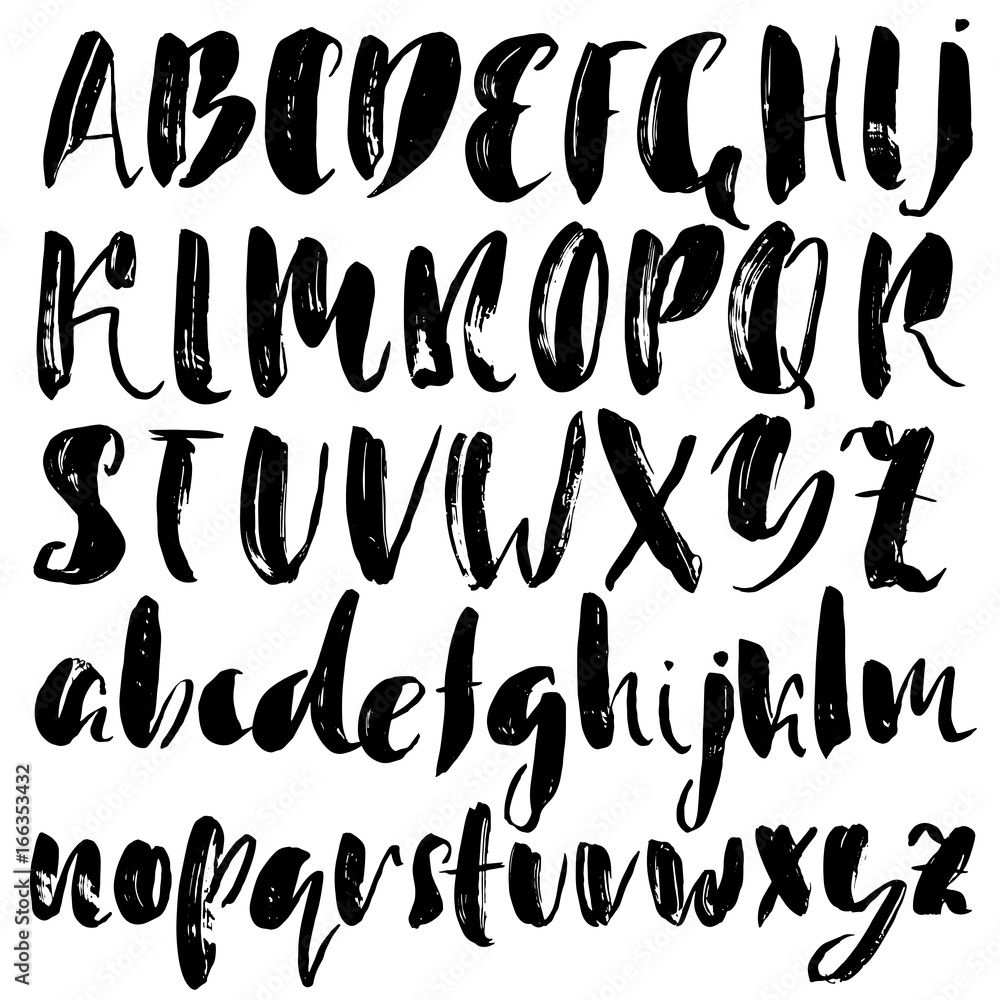 ABCDEFGHIJ
KLMNOPQR
STUVWXYZ
abcdefghijklm
nopqrstuvwxyz
Adobe Stock | #166353432